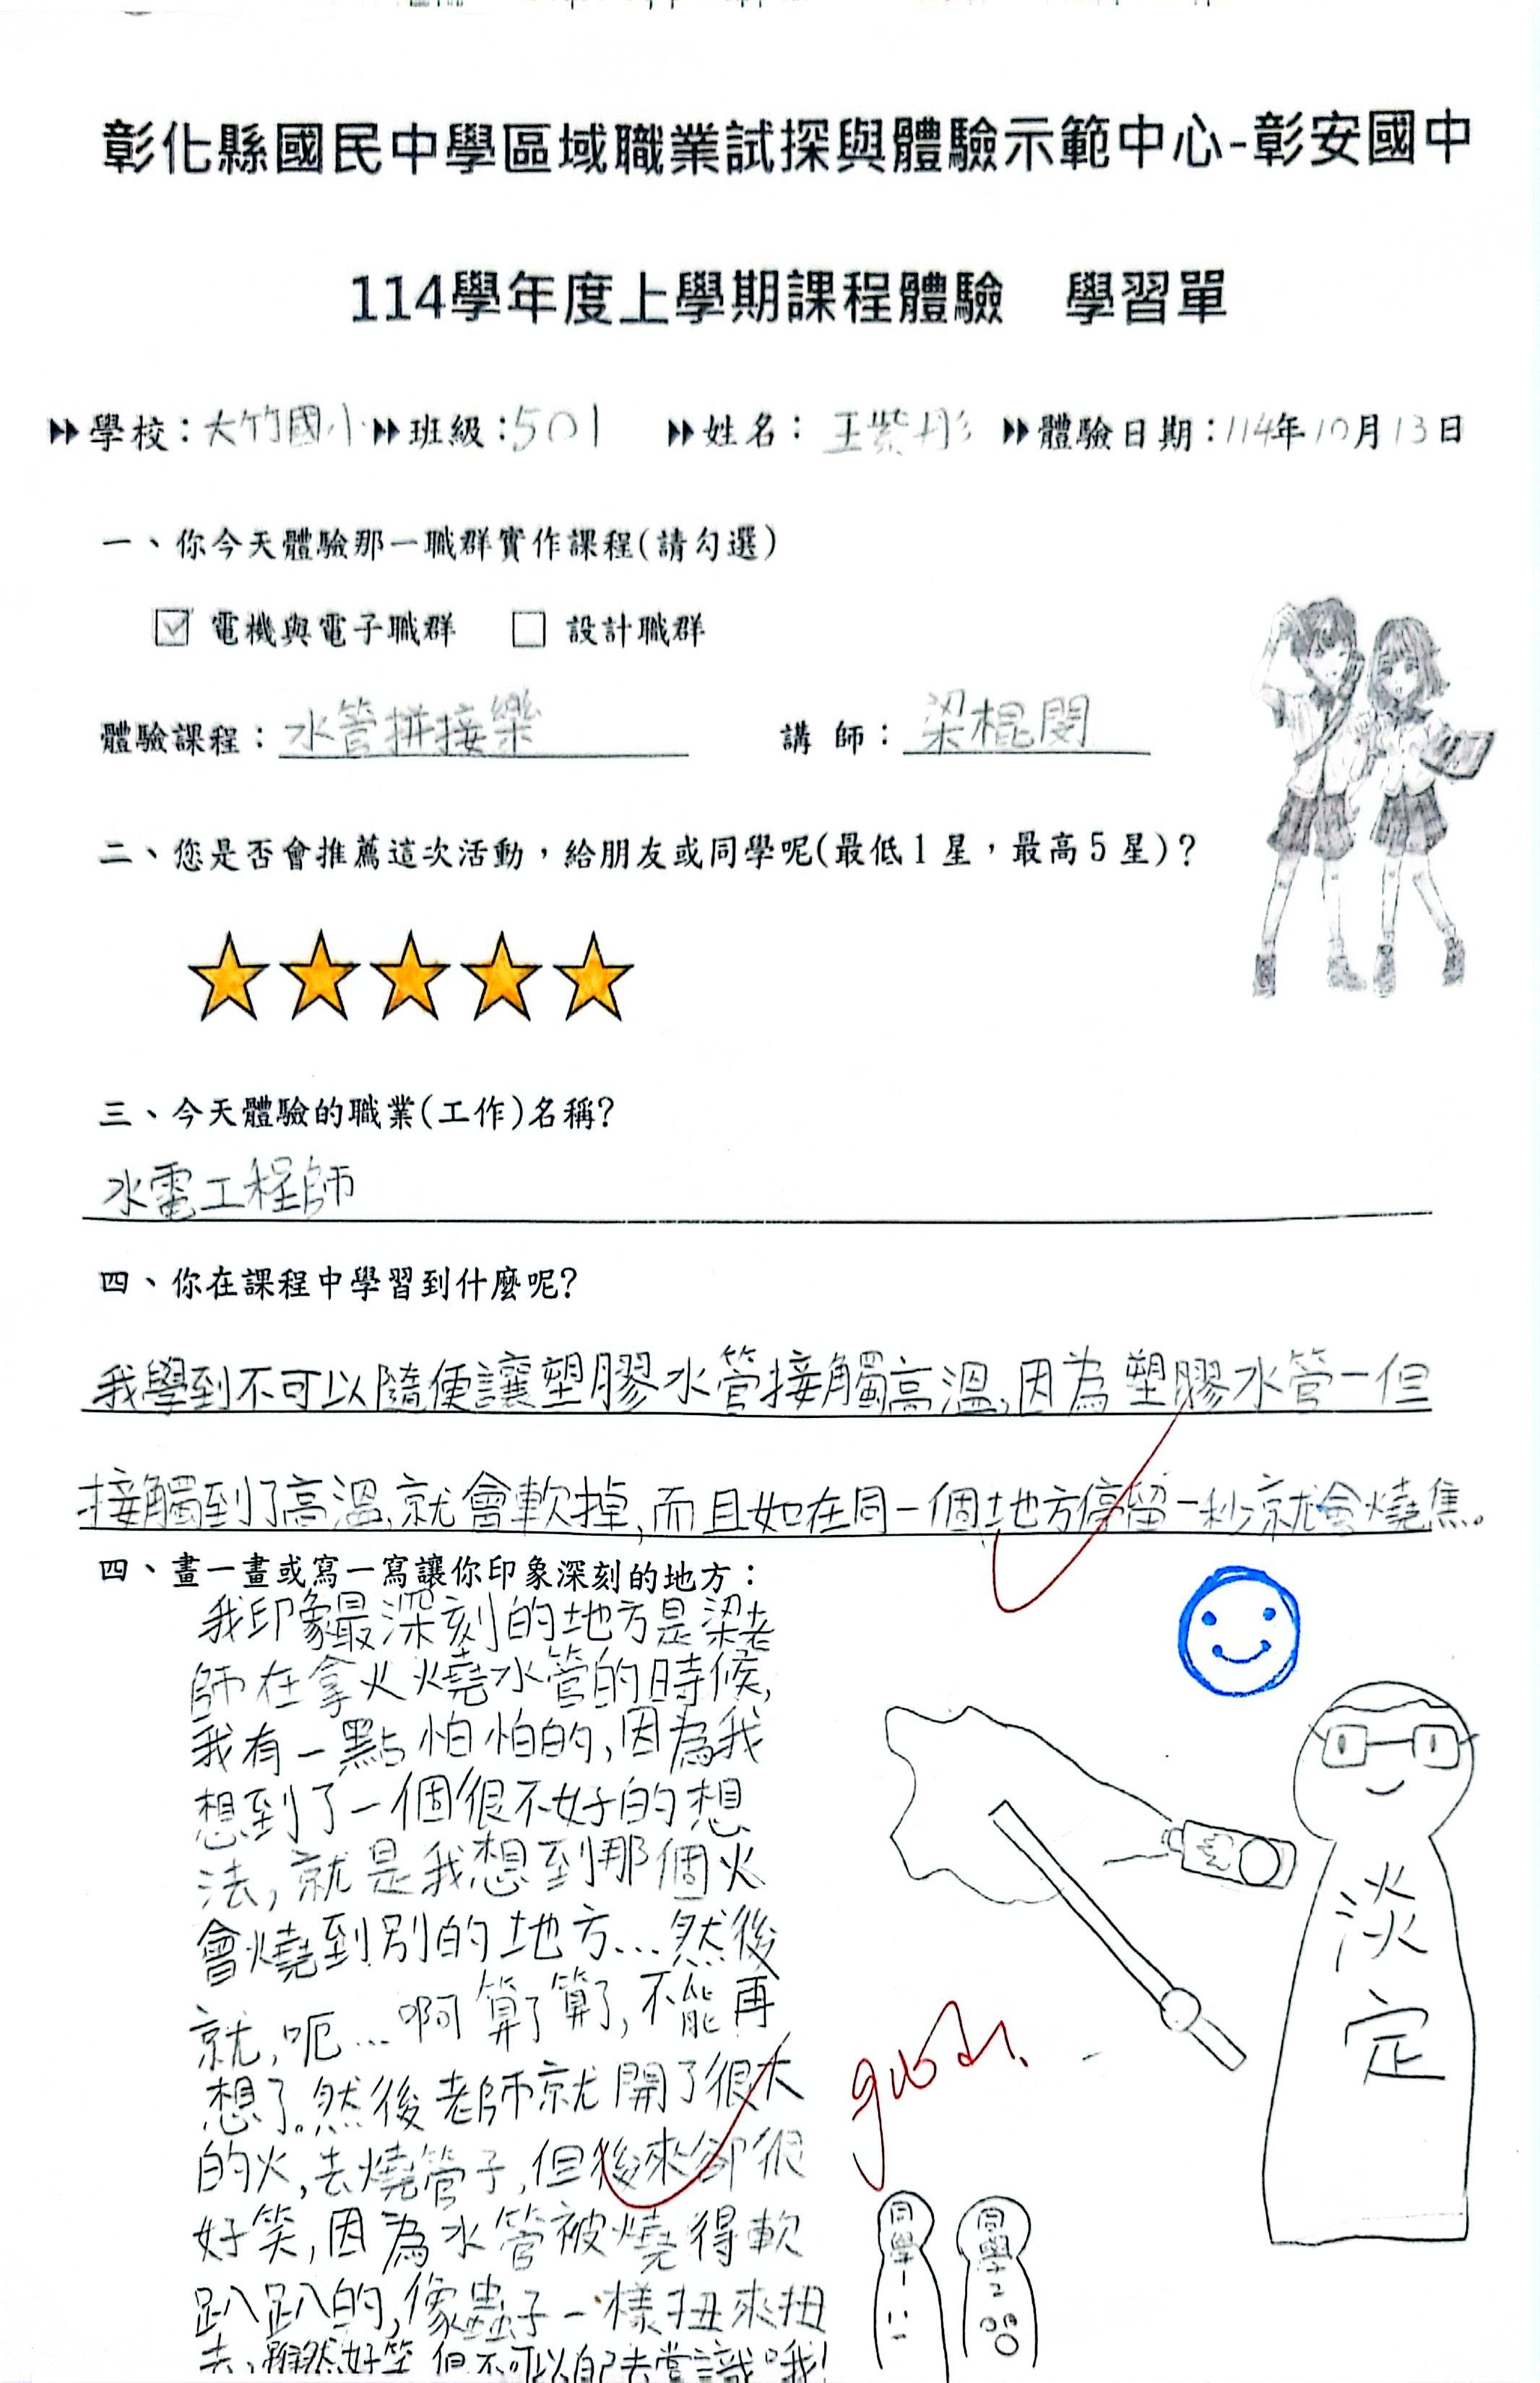 彰化縣國民中學區域職業試探與體驗示範中心-彰安國中
114學年度上學期課程體驗　學習單
學校：大竹國小 班級：501 姓名：王紫彤 體驗日期：114年10月13日
一、你今天體驗那一職群實作課程(請勾選)
☑ 電機與電子職群 □ 設計職群
體驗課程：水管拼接樂 講 師：梁棍閔
二、您是否會推薦這次活動，給朋友或同學呢(最低1星，最高5星)?
三、今天體驗的職業(工作)名稱?
水電工程師
四、你在課程中學習到什麼呢?
我學到不可以隨便讓塑膠水管接觸高溫,因為塑膠水管一但
接觸到了高溫,就會軟掉,而且如在同一個地方停留一秒就會燒焦。
四、畫一畫或寫一寫讓你印象深刻的地方：
我印象最深刻的地方是梁老
師在拿火火燒水管的時候,
我有一點怕怕的,因為我
想到了一個很不好的想
法,就是我想到那個火
會燒到別的地方...然後
就,呃...啊算了算了,不能再
想了。然後老師就開了很大
的火,去燒管子,但後來卻很
好笑,因為水管被燒得軟
趴趴的,像蟲子一樣扭來扭
去,雖然好笑,但不可以自己去嘗試哦!
淡
定
good.
同學1
同學2